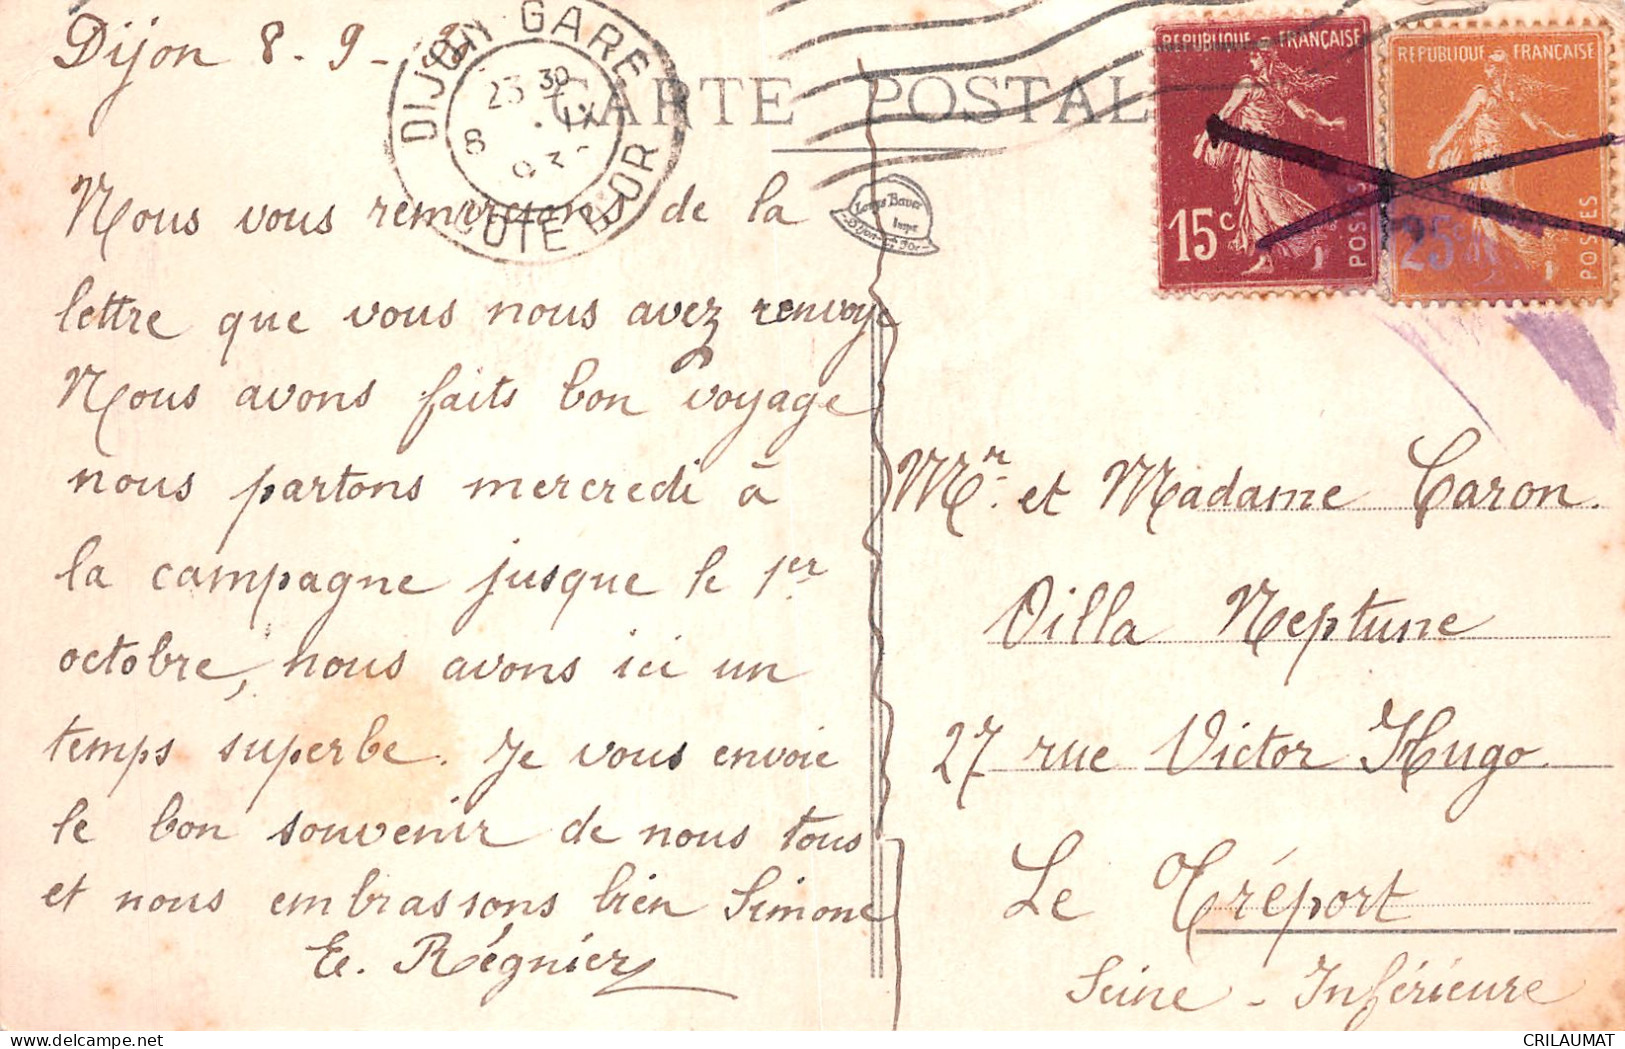 Dijon 8-9-
DIJON GARE
23 30
8 IX
COTE D'OR
CARTE POSTALE
REPUBLIQUE FRANÇAISE
15c
POSTES
REPUBLIQUE FRANÇAISE
25c
POSTES
Louys Bauer
Impr
Dijon
Nous vous remercions de la
lettre que vous nous avez renvoye
Nous avons faits bon voyage
nous partons mercredi à
la campagne jusque le 1er
octobre, nous avons ici un
temps superbe. Je vous envoie
le bon souvenir de nous tous
et nous embrassons bien Simone
E. Régnier
Mr. et Madame Caron.
Villa Neptune
27 rue Victor Hugo
Le Tréport
Seine-Inférieure
CRILAUMAT